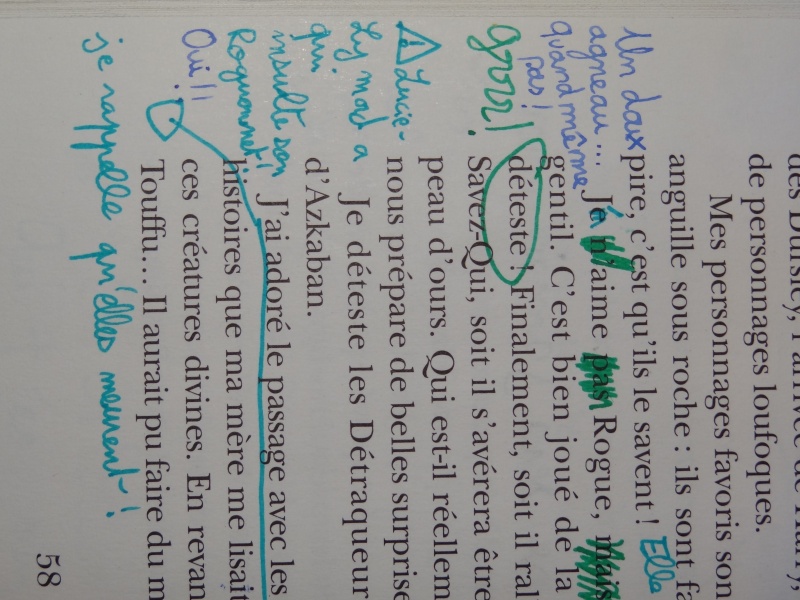 de personnages loufoques.
Mes personnages favoris son
anguille sous roche : ils sont fa
pire, c'est qu'ils le savent !
Elle
Un doux
agneau...
quand même
pas !
Je n'aime pas Rogue, mais
gentil. C'est bien joué de la
déteste ! Finalement, soit il ral
Grrrr !
Savez-Qui, soit il s'avérera être
peau d'ours. Qui est-il réellem
nous prépare de belles surprise
Lucie-
Ly mad a
qui
insulte son
Je déteste les Détraqueur
d'Azkaban.
J'ai adoré le passage avec les
histoires que ma mère me lisait
Oui !!
ces créatures divines. En revan
Touffu… Il aurait pu faire du m
je rappelle qu'elles meurent !
58